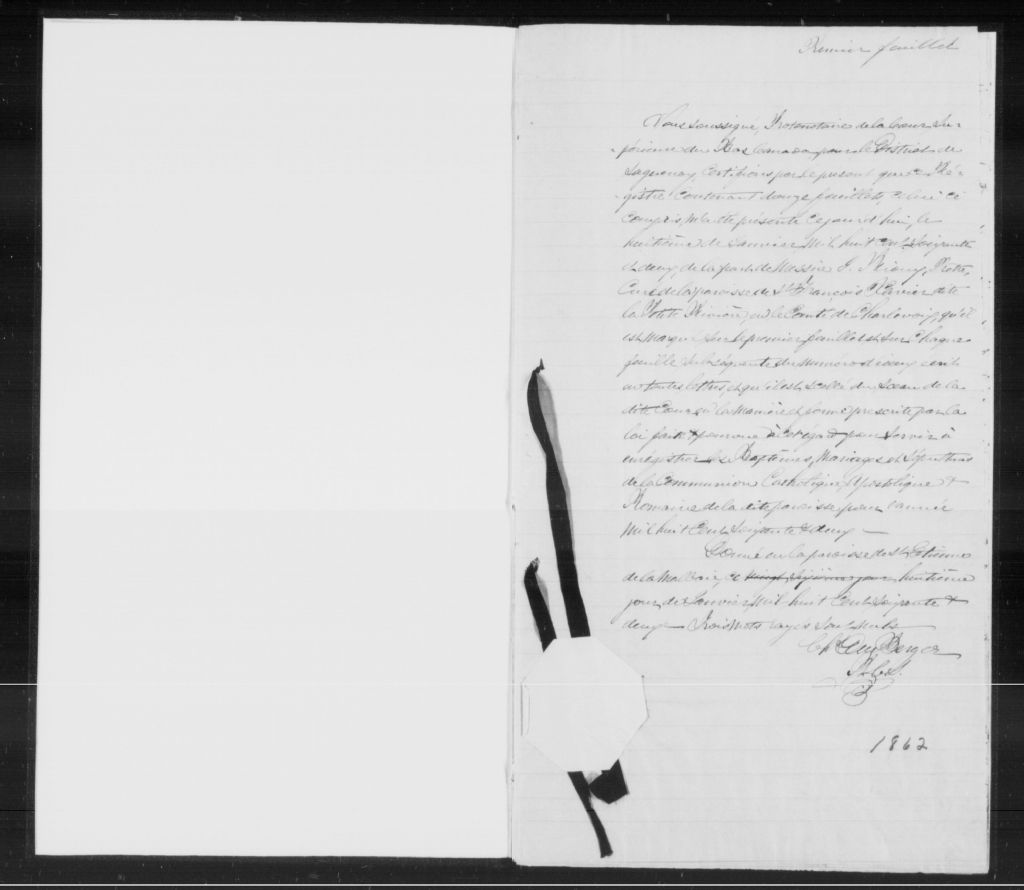 Premier feuillet
Nous soussigné, Protonotaire de la Cour Su-
périeure du Bas Canada, pour le District de
Saguenay, Certifions par le présent que ce Ré-
gistre Contenant douze feuillets, celui ci
Compris, été présenté cejourd'hui, le
huitième de Janvier Mil huit Cent Soixante
et deux, de la part de Messire Ptre,
Curé de la paroisse de St François Xavier de
la Petite Rivière, en le Comté de Charlevoix, qu'il
est Marqué Sur le premier feuillet et Sur Chaque
feuillet du Numéro d'iceux écrit
en toutes lettres, et qu'il est Scellé du Sceau de la
dite Cour en la Manière et forme prescrite par la
loi faite et pourvue à cet égard pour Servir à
enrégistrer les Baptêmes, Mariages et Sépultures
de la Communion Catholique, Apostolique &
Romaine de la dite paroisse pour l'année
Mil huit Cent Soixante & deux —
Donné en la paroisse de St Etienne
de la Malbaie, ce vingt sixième jour huitième
jour de Janvier, Mil huit Cent Soixante &
deux — Trois Mots rayés Sont Nuls
Chs Du Berger
P.C.S.
1862